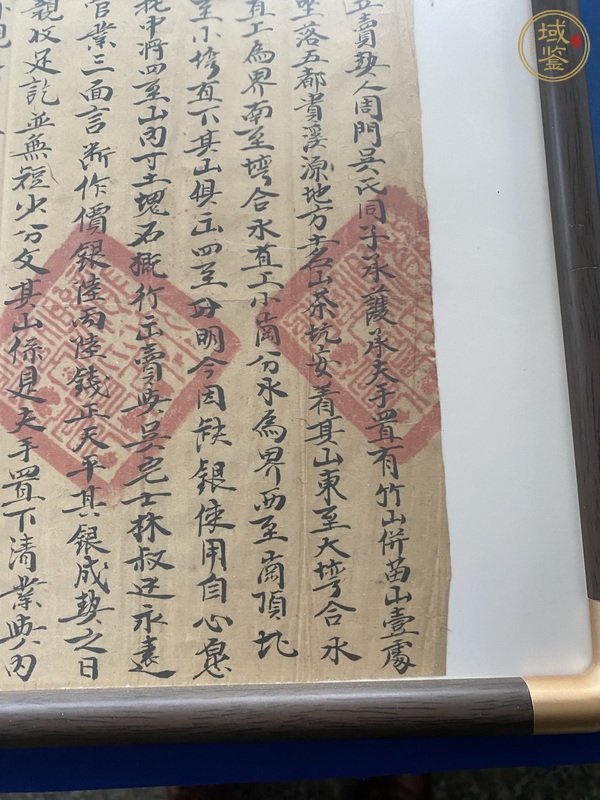 立賣契人周門吳氏同子承護承夫手置有竹山併苗山壹處
坐落五都貴溪源地方土名山茶坑安着其山東至大塆合水
直上為界南至塆合水直上小崗分水為界西至崗頂北
至小塆直下其山俱正四至分明今因缺銀使用自心愿
托中將四至山內寸土塊石概行出賣與吳宅士林叔邊永遠
管業三面言斷作價銀陸兩陸錢正天平其銀成契之日
親收足訖並無短少分文其山係是夫手置下清業與內
域鑒